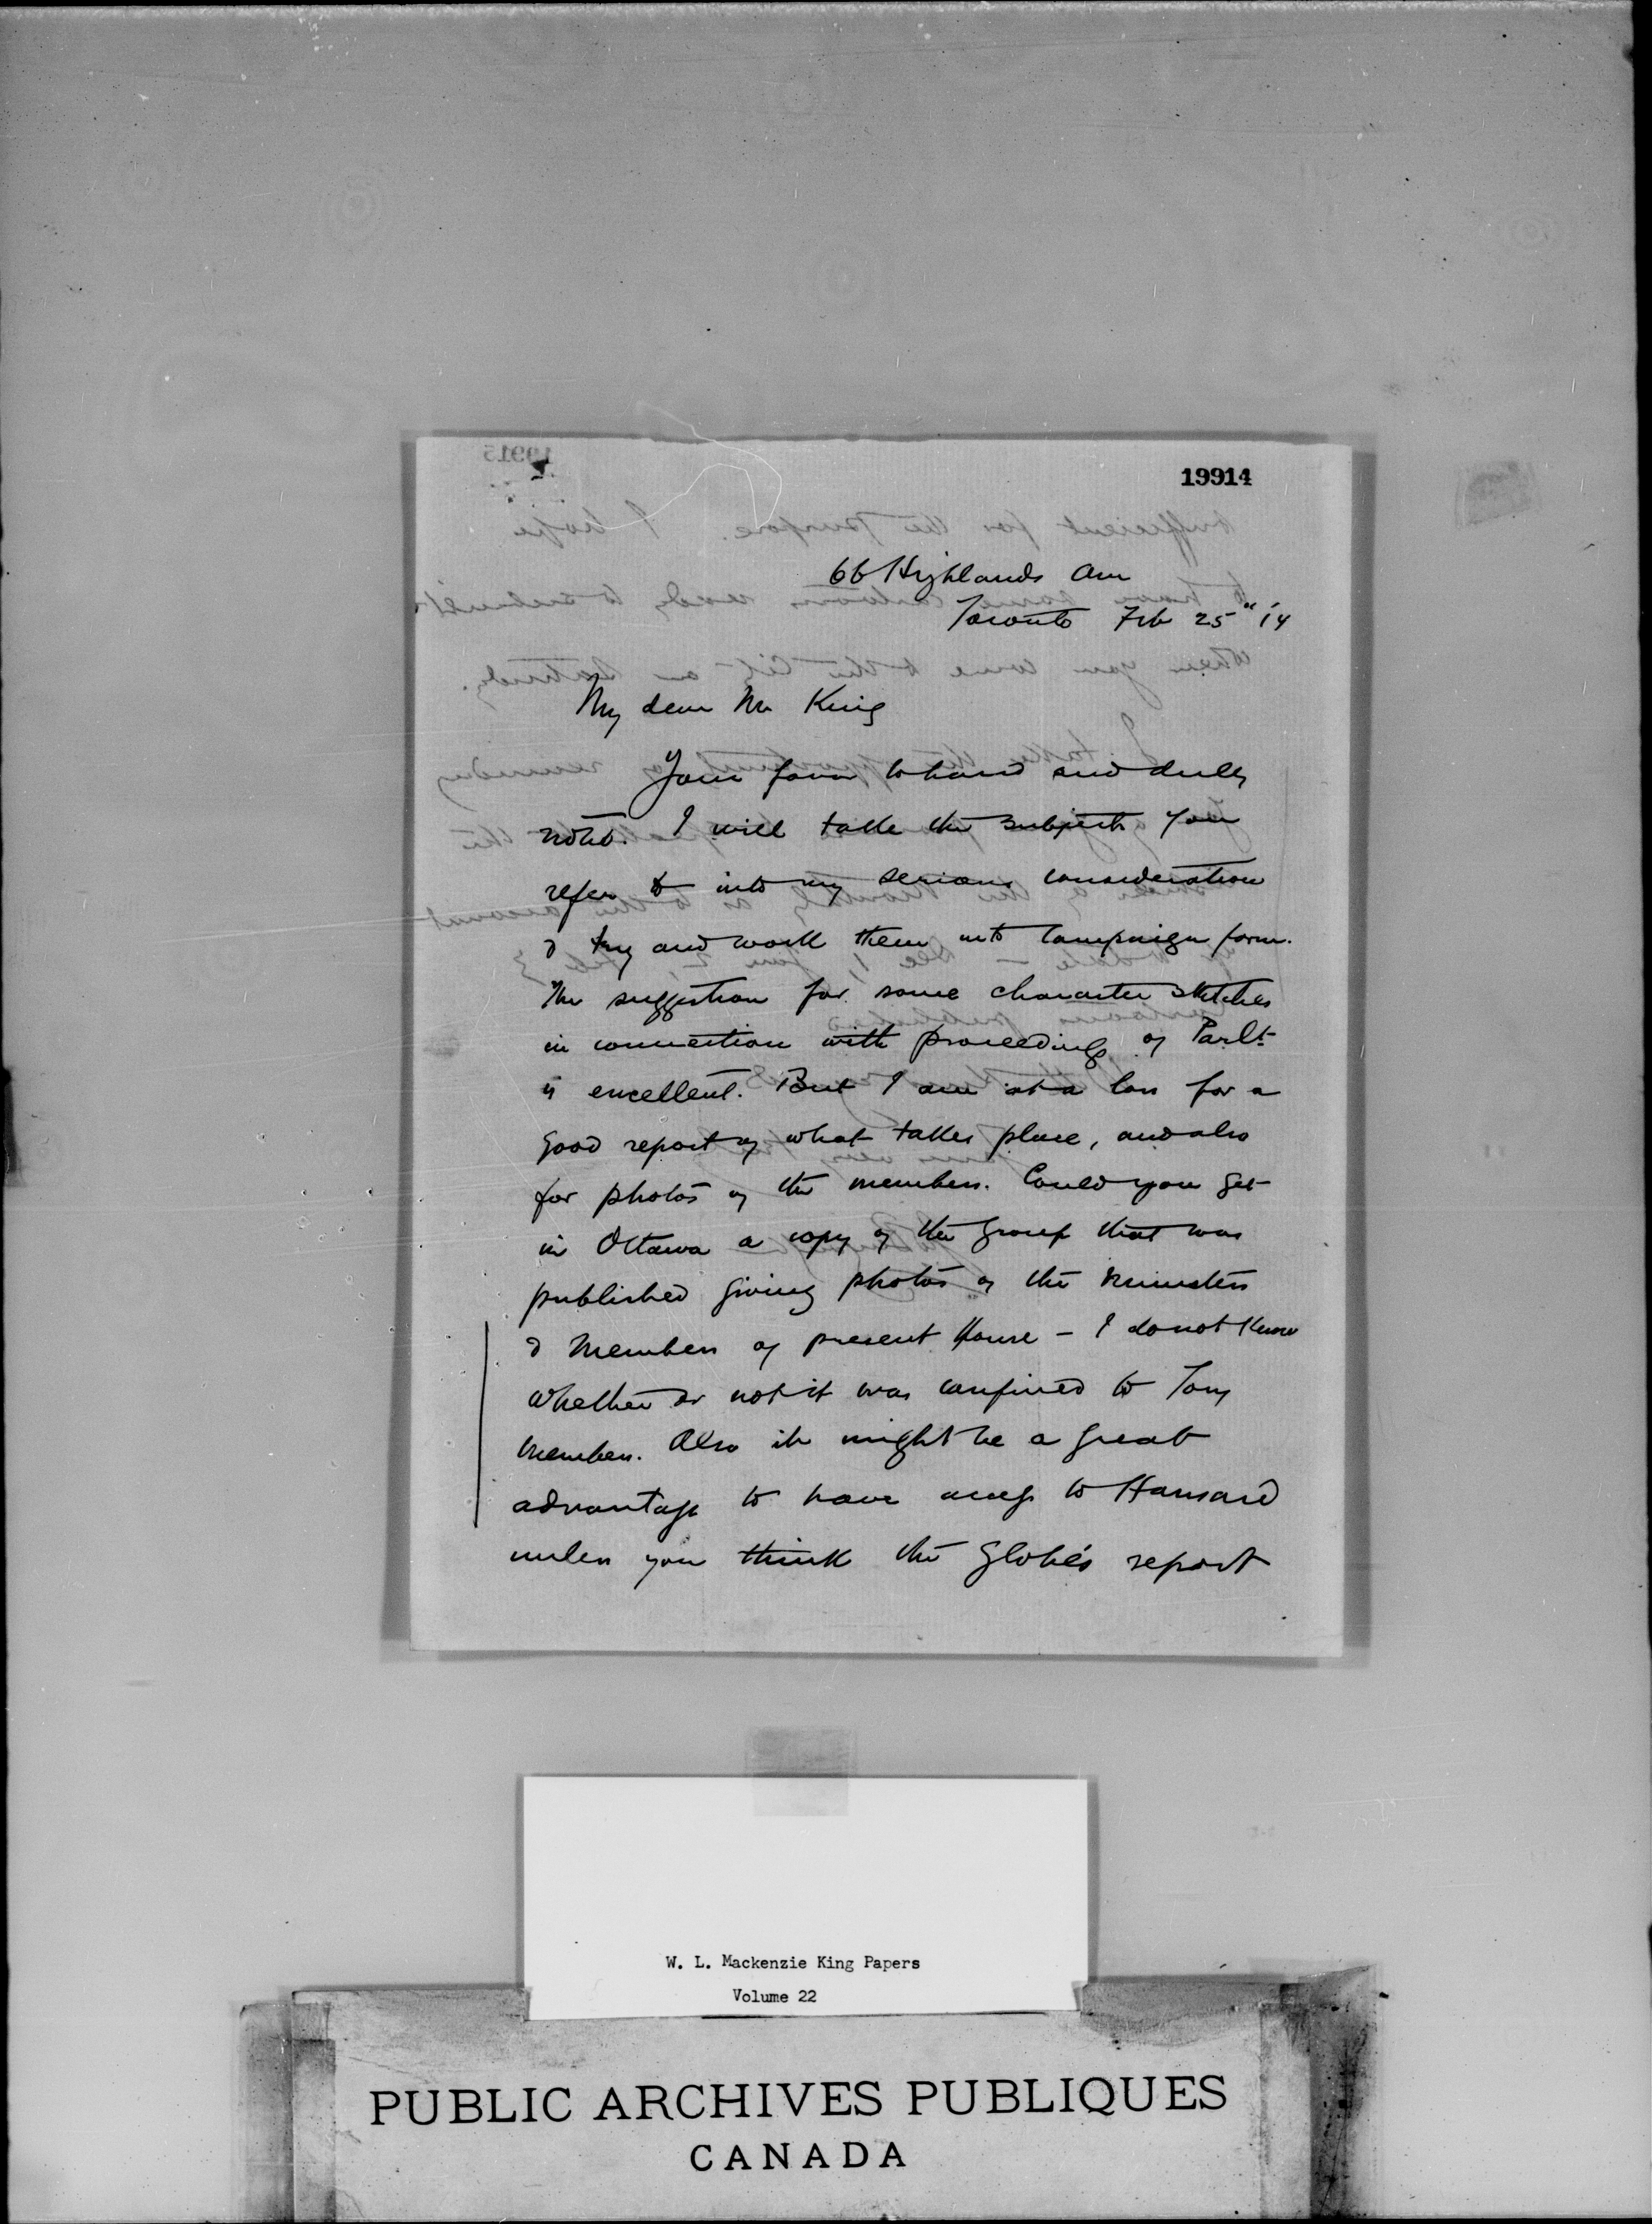 19915
19914
66 Highlands Ave
Toronto Feb 25" 14
My dear Mr King
Your favor to hand and duly
noted. I will take the subjects you
refer to into my serious consideration
& try and work them into Campaign form.
The suggestion for some character sketches
in connection with proceedings of Parlt
is excellent. But I am at a loss for a
good report of what takes place, and also
for photos of the members. Could you get
in Ottawa a copy of the group that was
published giving photos of the Ministers
& Members of present House - I do not know
whether or not it was confined to Tory
Members. Also it might be a great
advantage to have access to Hansard
unless you think the Globe's report
W. L. Mackenzie King Papers
Volume 22
PUBLIC ARCHIVES PUBLIQUES
CANADA